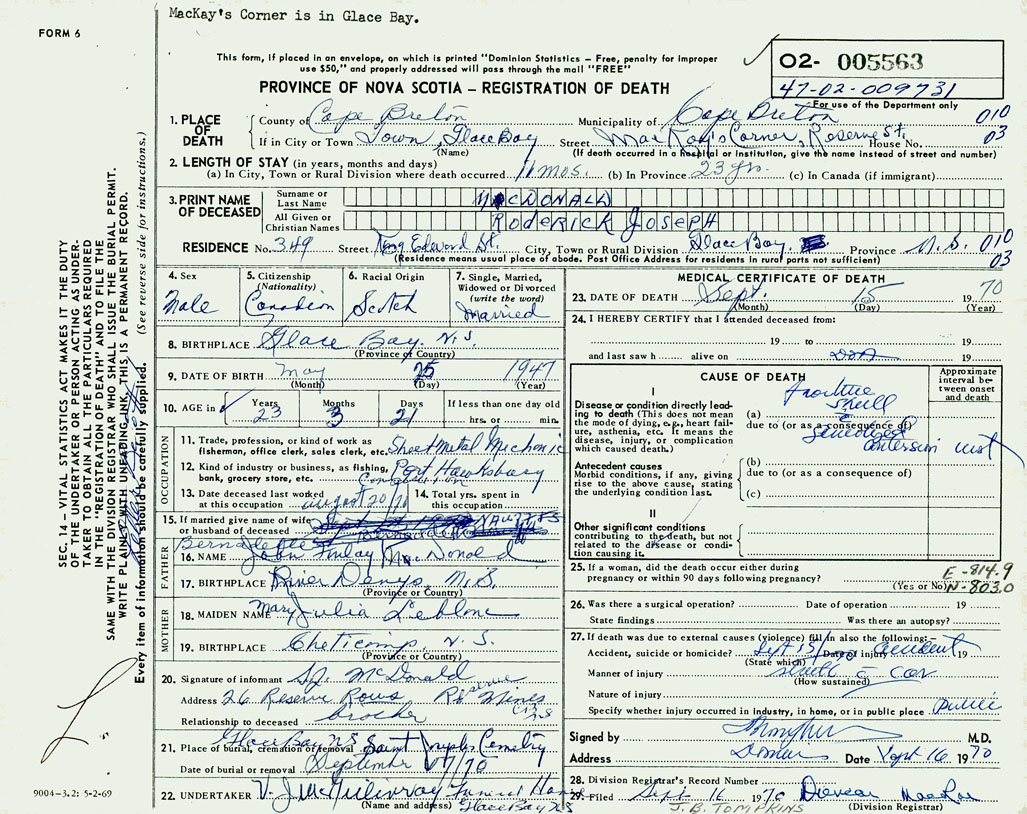 MacKay's Corner is in Glace Bay.
FORM 6
This form, if placed in an envelope, on which is printed "Dominion Statistics – Free, penalty for improper
use $50," and properly addressed will pass through the mail "FREE"
O2- 005563
47-02-009731
For use of the Department only
PROVINCE OF NOVA SCOTIA – REGISTRATION OF DEATH
1. PLACE OF DEATH
County of Cape Breton Municipality of Cape Breton 010
If in City or Town Town, Glace Bay Street MacKay's Corner, Reserve St. House No. 03
(Name) (If death occurred in a hospital or institution, give the name instead of street and number)
2. LENGTH OF STAY (in years, months and days)
(a) In City, Town or Rural Division where death occurred 11 mos. (b) In Province 23 yrs. (c) In Canada (if immigrant)
3. PRINT NAME OF DECEASED
Surname or Last Name McDONALD
All Given or Christian Names RODERICK JOSEPH
RESIDENCE No. 349 Street King Edward St. City, Town or Rural Division Glace Bay. Province N.S. 010
(Residence means usual place of abode. Post Office Address for residents in rural parts not sufficient) 03
4. Sex
Male
5. Citizenship (Nationality)
Canadian
6. Racial Origin
Scotch
7. Single, Married, Widowed or Divorced (write the word)
Married
8. BIRTHPLACE Glace Bay. N.S.
(Province or Country)
9. DATE OF BIRTH May 25 1947
(Month) (Day) (Year)
10. AGE in Years Months Days If less than one day old
23 3 21 hrs. or min.
OCCUPATION
11. Trade, profession, or kind of work as
fisherman, office clerk, sales clerk, etc. Sheet Metal Mechanic
12. Kind of industry or business, as fishing, Port Hawksbury
bank, grocery store, etc.
13. Date deceased last worked
at this occupation August 20/70
14. Total yrs. spent in
this occupation
15. If married give name of wife
or husband of deceased
Bernadette
FATHER
16. NAME John Finlay McDonald
17. BIRTHPLACE River Denys, N.S.
(Province or Country)
MOTHER
18. MAIDEN NAME Mary Julia Leblanc
19. BIRTHPLACE Cheticamp, N.S.
(Province or Country)
20. Signature of informant McDonald
Address 26 Reserve Rows Reserve Mines
Relationship to deceased brother
21. Place of burial, cremation or removal Glace Bay NS Saint Josephs Cemetry
Date of burial or removal September 17/70
22. UNDERTAKER V. J. McGillivray Funeral Home
(Name and address) Glace Bay NS
MEDICAL CERTIFICATE OF DEATH
23. DATE OF DEATH Sept. 15 1970
(Month) (Day) (Year)
24. I HEREBY CERTIFY that I attended deceased from:
19 to 19
and last saw h alive on DOA 19
CAUSE OF DEATH
Approximate interval between onset and death
I
Disease or condition directly leading to death (This does not mean the mode of dying, e.g., heart failure, asthenia, etc. It means the disease, injury, or complication which caused death.)
(a) fracture skull
due to (or as a consequence of)
Antecedent causes
Morbid conditions, if any, giving rise to the above cause, stating the underlying condition last.
(b)
due to (or as a consequence of)
(c)
II
Other significant conditions contributing to the death, but not related to the disease or condition causing it.
25. If a woman, did the death occur either during
pregnancy or within 90 days following pregnancy?
(Yes or No)
E-814.9
N-803.0
26. Was there a surgical operation? Date of operation 19
State findings Was there an autopsy?
27. If death was due to external causes (violence) fill in also the following:–
Accident, suicide or homicide? Sept 15/1970 Date of injury accident 19
(State which)
Manner of injury
(How sustained)
Nature of injury
Specify whether injury occurred in industry, in home, or in public place public
Signed by M.D.
Address Date Sept 16 1970
28. Division Registrar's Record Number
29. Filed Sept 16 1970
J.B. TOMPKINS (Division Registrar)
SEC. 14 – VITAL STATISTICS ACT MAKES IT THE DUTY
OF THE UNDERTAKER OR PERSON ACTING AS UNDER-
TAKER TO OBTAIN ALL THE PARTICULARS REQUIRED
IN THE "REGISTRATION OF DEATH" AND TO FILE THE
SAME WITH THE DIVISION REGISTRAR WHO SHALL ISSUE THE BURIAL PERMIT.
WRITE PLAINLY WITH UNFADING INK, THIS IS A PERMANENT RECORD.
Every item of information should be carefully supplied. (See reverse side for instructions.)
9004-3.2: 5-2-69